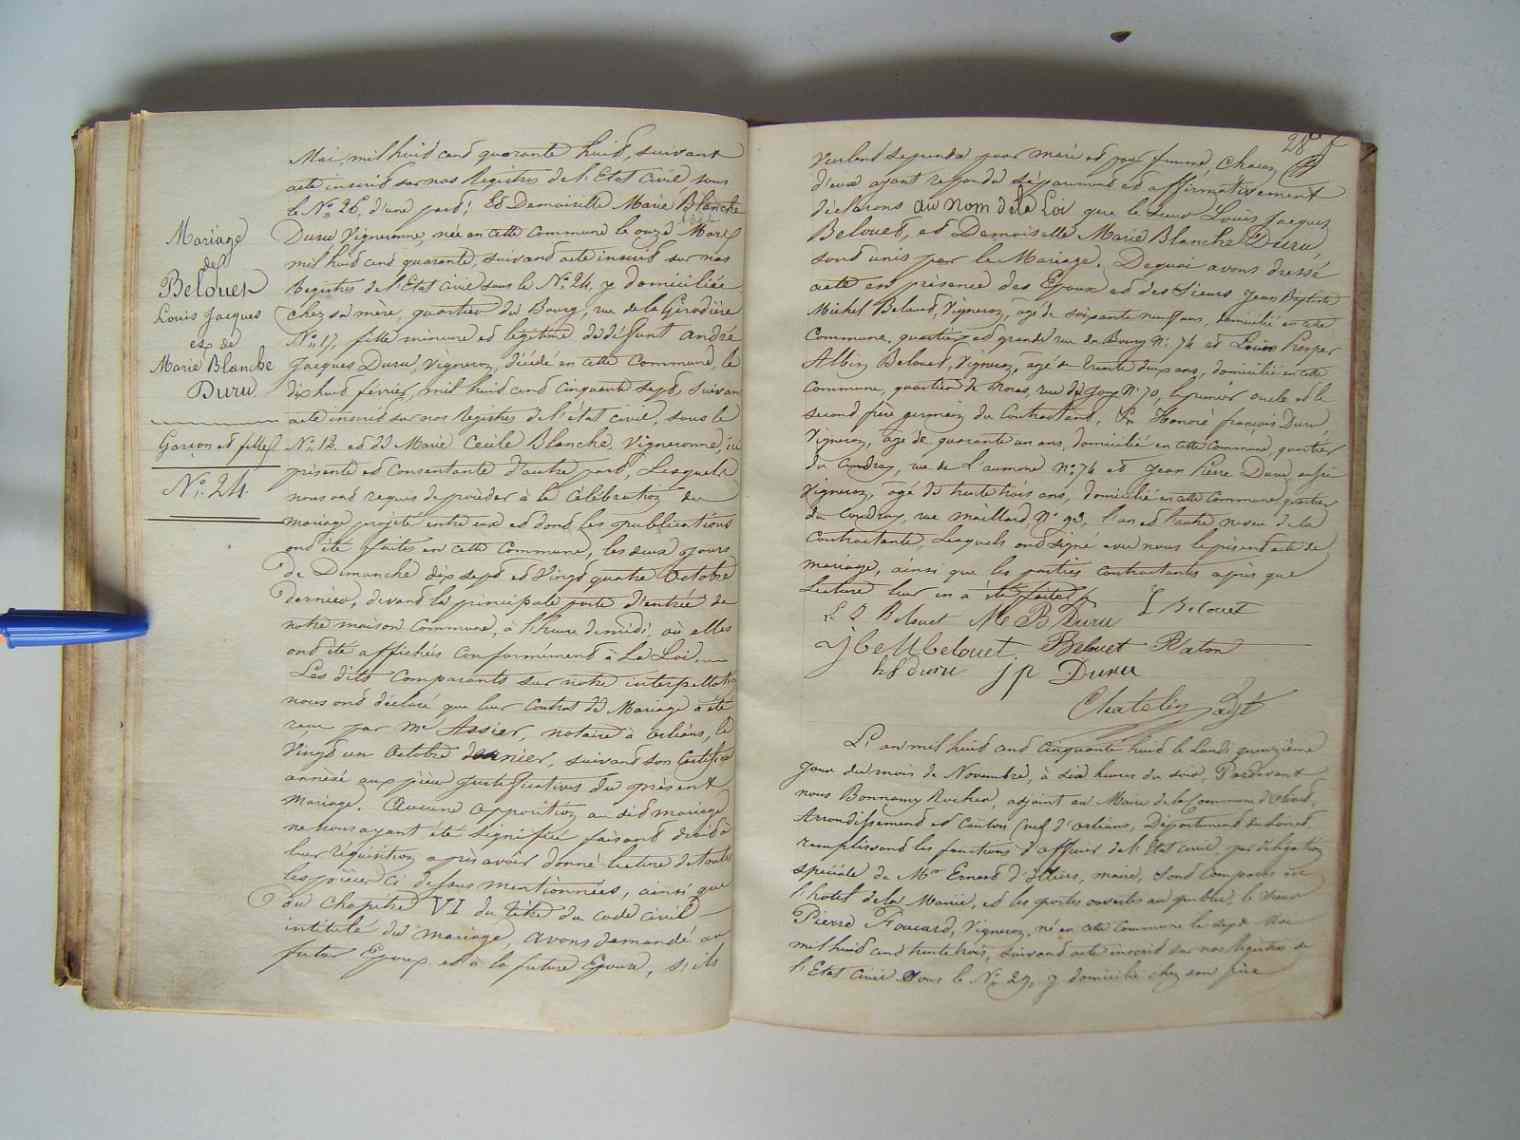 Mariage
de
Belouet
Louis Jacques
et de
Marie Blanche
Duru
Garçon et fille
N.° 24.
Mai, mil huit cent quarante huit, suivant
acte inscrit sur nos Registres de l'Etat Civil sous
le N.° 26, d'une part; Et Demoiselle Marie Blanche
Duru Vigneronne, née en cette Commune le onze Mars
mil huit cent quarante, suivant acte inscrit sur nos
Registres de l'Etat Civil sous le N.° 24, y domiciliée
chez sa mère, quartier du Bourg, rue de la
N.° 17, fille mineure et légitime de défunt André
Jacques Duru, Vigneron, décédé en cette Commune, le
dix huit février, mil huit cent cinquante sept, suivant
acte inscrit sur nos Registres de l'état civil, sous le
N.° 12. et de Marie Cécile Blanche, Vigneronne, ici
présente et consentante d'autre part, Lesquels
nous ont requis de procéder à la Célébration du
mariage projeté entre eux et dont les publications
ont été faites en cette Commune, les deux jours
de Dimanche dix sept et Vingt quatre Octobre
dernier, devant la principale porte d'entrée de
notre maison Commune, à l'heure de midi, où elles
ont été affichées conformément à La Loi.
Les dits Comparants sur notre interpellation
nous ont déclaré que leur Contrat de Mariage a été
reçu par Me Assier, notaire à Orléans, le
Vingt un Octobre dernier, suivant son Certificat
annexé aux pièces justificatives du présent
Mariage. Aucune opposition au dit mariage
ne nous ayant été signifiée faisant droit à
leur réquisition après avoir donné lecture de toutes
les pièces ci dessus mentionnées, ainsi que
du Chapitre VI du titre du code civil
intitulé du mariage, avons demandé au
futur Epoux et à la future Epouse, s'ils
28
veulent se prendre pour mari et pour femme, Chacun
d'eux ayant répondu séparément et affirmativement
déclarons au nom de la Loi que le Sieur Louis Jacques
Belouet, et Demoiselle Marie Blanche Duru,
sont unis par le Mariage. De quoi avons dressé
acte en présence des Epoux et des Sieurs Jean Baptiste
Michel Belouet, Vigneron, âgé de soixante neuf ans, domicilié en cette
Commune, quartier et grande rue du Bourg N.° 74 et Louis Prosper
Albin Belouet, Vigneron, âgé de trente deux ans, domicilié en cette
Commune, quartier de rue N.° 70, le premier oncle et le
second frère germain du Contractant, Honoré françois Duru,
Vigneron, âgé de quarante un ans, domicilié en cette Commune, quartier
du Coudray, rue de L'aumone N.° 76 et Jean Pierre Duru aussi
Vigneron, âgé de trente trois ans, domicilié en cette Commune quartier
du Coudray, rue Maillard N.° 93, l'un et l'autre neveu de la
Contractante, Lesquels ont signé avec nous le présent acte de
mariage, ainsi que les parties contractantes après que
Lecture leur en a été faite
L J Belouet M B Duru L Belouet
Belouet Belouet Platon
h f duru j p Duru
Chatelin adjt
L'an mil huit cent cinquante huit le lundi quinzième
jour du mois de Novembre, à six heures du soir, Pardevant
nous Bonnamy Rocher, adjoint au Maire de la Commune d'Olivet,
Arrondissement et Canton Sud d'Orléans, Département du Loiret,
remplissant les fonctions d'officier de l'Etat civil par délégation
spéciale de Mr Ernest d'Illiers, maire, sont comparus en
l'hotel de la Mairie, et les portes ouvertes au public, le Sieur
Pierre Foucard, Vigneron, né en cette Commune le sept Mai
mil huit cent trente trois, suivant acte inscrit sur nos Registres de
l'Etat Civil sous le N.° 29, y domicilié chez son père